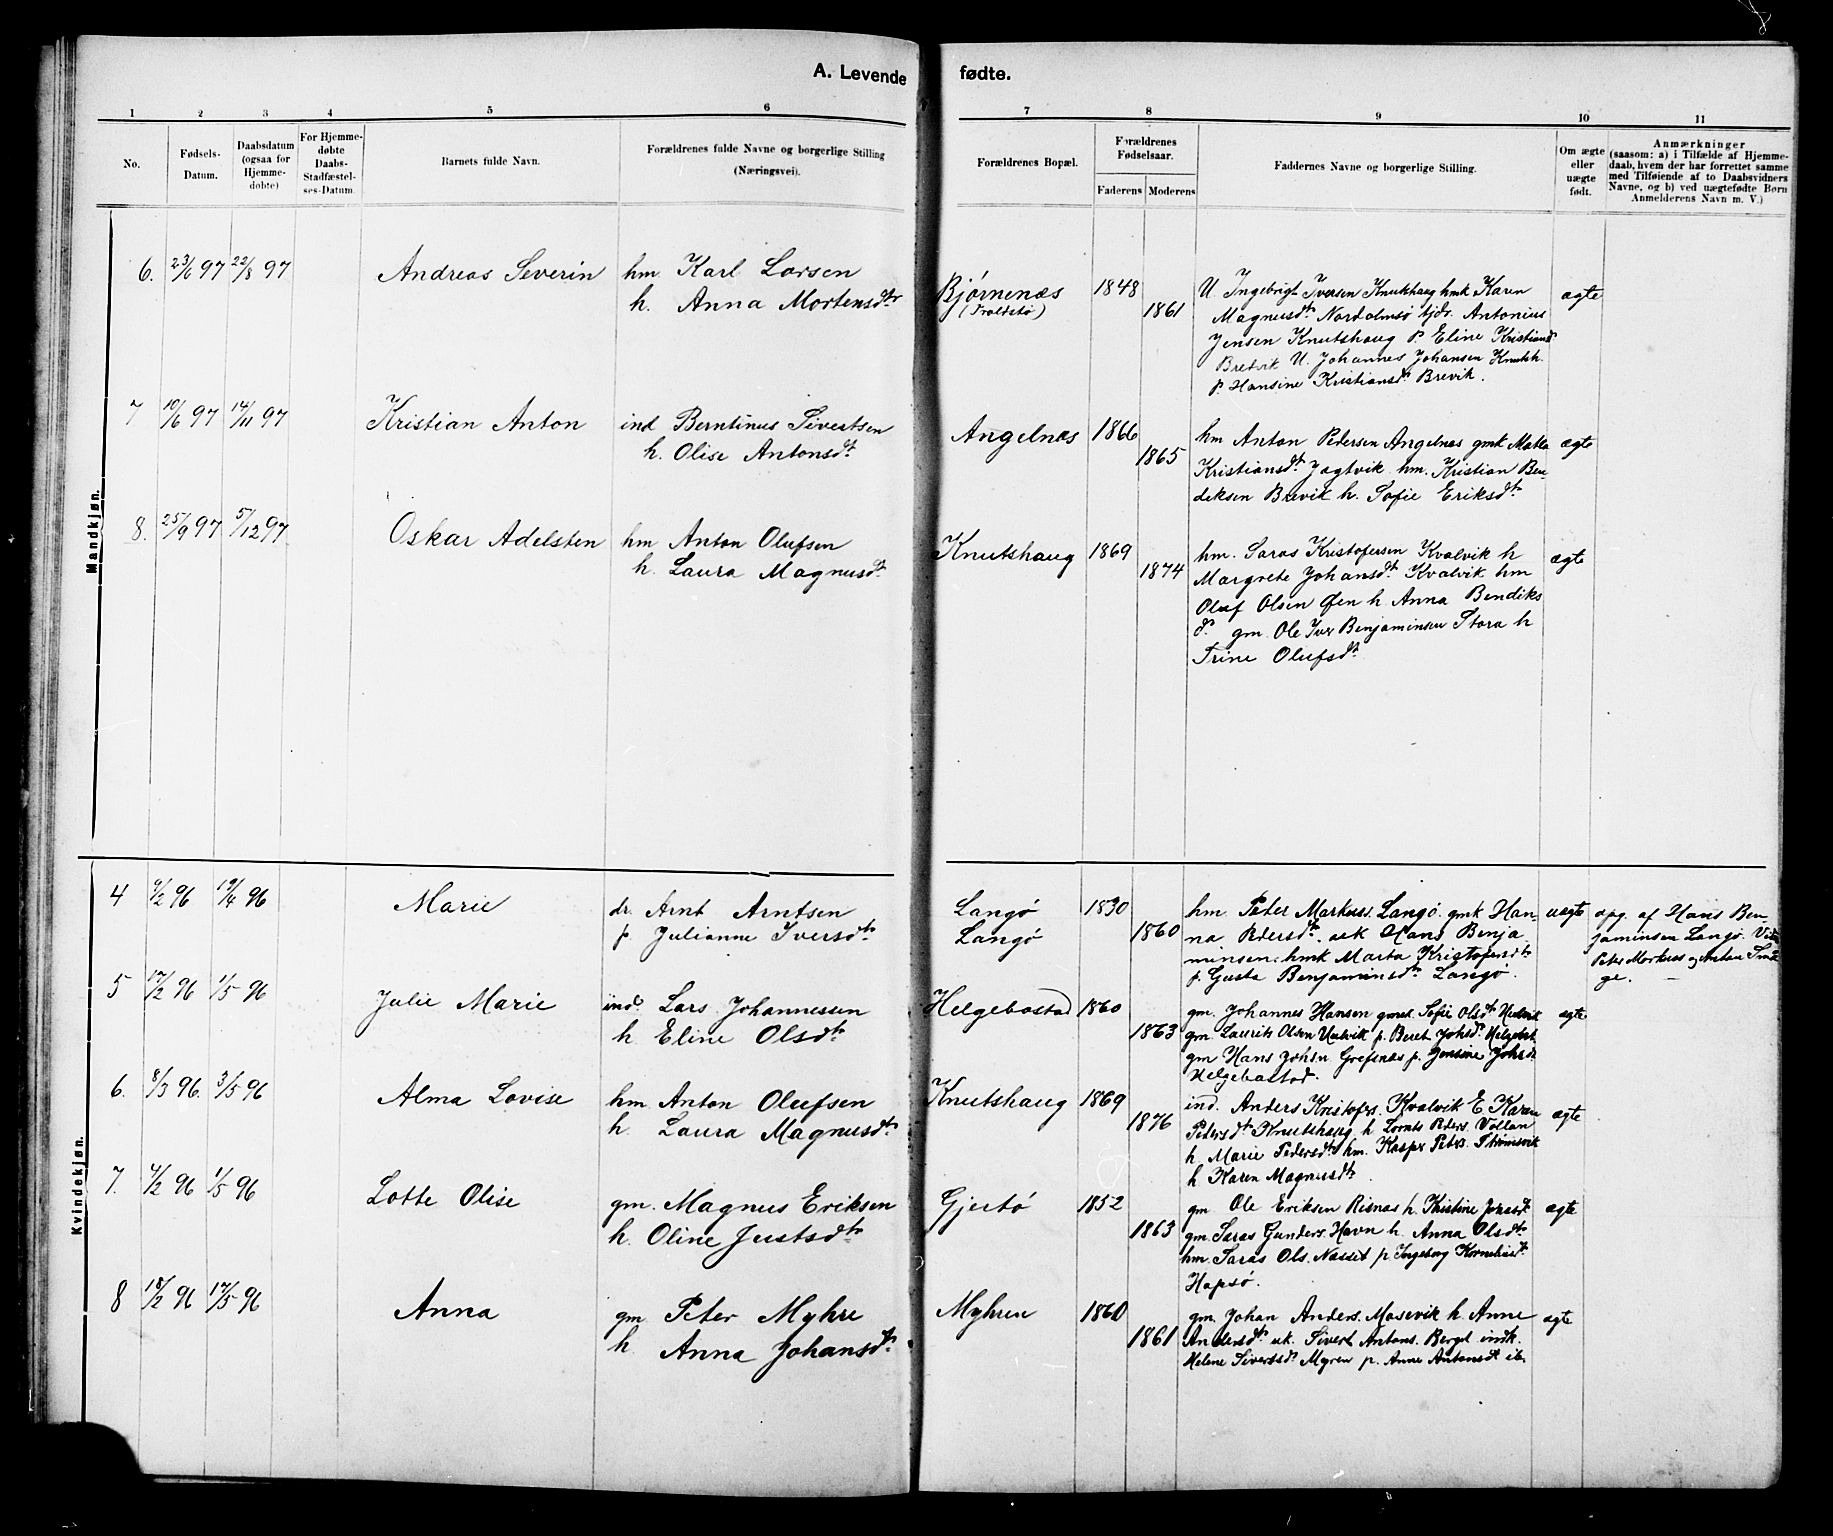 8
A. Levende fødte.
1 2 3 4 5 6 7 8 9 10 11
No.
Fødsels-Datum.
Daabsdatum (ogsaa for Hjemme-døbte)
For Hjemme-døbte Daabs-Stadfæstel-ses-Datum.
Barnets fulde Navn.
Forældrenes fulde Navne og borgerlige Stilling
(Næringsvei).
Forældrenes Bopæl.
Forældrenes Fødselsaar.
Faderens Moderens
Faddernes Navne og borgerlige Stilling.
Om ægte eller uægte født.
Anmærkninger
(saasom: a) i Tilfælde af Hjemme-
daab, hvem der har forrettet samme
med Tilføiende af to Daabsvidners
Navne, og b) ved uægtefødte Børn
Anmelderens Navn m. V.)
Mandkjøn.
6. 23/6 97 22/8 97 Andreas Severin
hm. Karl Larsen
h. Anna Mortensdtr
Bjørnenæs
(Troldstø)
1848
1861
U. Ingebrigt Iversen Knutshaug hmk Karen
Magnusdtr Nordolmsø tjdr. Antonius
Jensen Knutshaug p. Eline Kristiansd
Bredvik U. Johannes Johansen Knutsh.
p. Hansine Kristiansdtr Brevik.
ægte
7 10/6 97 14/11 97 Kristian Anton
ind Berntinus Sivertsen
h. Olise Antonsdtr
Angelnæs
1866
1865
hm Anton Pedersen Angelnæs gmk Malla
Kristiansdtr Jagtvik hm. Kristian Ben-
deksen Brevik h. Sofie Eriksdtr
ægte
8. 25/9 97 5/12 97 Oskar Adelsten
hm Anton Olufsen
h. Laura Magnusdtr
Knutshaug
1869
1874
hm. Saras Kristofersen Kvalvik h
Margrete Johansdtr Kvalvik hm
Oluf Olsen Øen h. Anna Bendiks
dtr. gm. Ole Iver Benjaminsen Stora h
Trine Olufsdtr
ægte
Kvindekjøn.
4 9/2 96 19/4 96 Marie
dr. Arnt Arntsen
p. Julianne Iversdtr
Langø
Langø
1830
1860
hm. Peter Markuss. Langø. gmk Han-
na Pedersdtr. uk Hans Benja
minsen. hmk Marta Kristofersdtr
p. Gusta Benjaminsdtr Langø.
uægte
opg. af Hans Ben-
jaminsen Langø.
Peter Markuss og Anton
5 17/2 96 1/5 96 Julie Marie
ind. Lars Johannesen
h Eline Olsdtr
Helgebostad
1860
1863
gm. Johannes Hansen gmk Sofie Olsdtr
gm. Laurits Olsen p. Beret Johsdtr Helgebst
gm Hans Johsn Grefsnæs p. Jensine Johsdtr
Helgebastad.
ægte
6. 8/3 96. 3/5 96 Alma Lovise
hm. Anton Olufsen
h. Laura Magnusdtr
Knutshaug
1869
1876
ind. Anders Kristofers. Kvalvik E. Karen
Pedersdtr Knutshaug h Lornts Peders. Vollan
h. Marie Pedersdtr hm. Kasper Peters.
h Karen Magnusdtr
ægte
7. 4/2 96 1/5 96 Lotte Olise
gm. Magnus Eriksen
h. Oline Justsdtr
Gjestø
1852
1863
gm Ole Eriksen Risnæs h. Kristine Jonasdtr
gm. Saras Gunders. Havn h. Anna Olsdtr
hm. Saras Ols. Nasset p. Ingeborg Korneliusdtr
Hapsø.
ægte
8 18/2 96 17/5 96 Anna
gm Peter Myhre
h. Anna Johansdtr
Myhren
1860
1861
gm. Johan Anders. Mosevik h. Anne
Andersdtr uk. Sivert Antons. Berget indk.
Helene Sivertsdtr Myren p. Anne Antonsdtr ib.
ægte